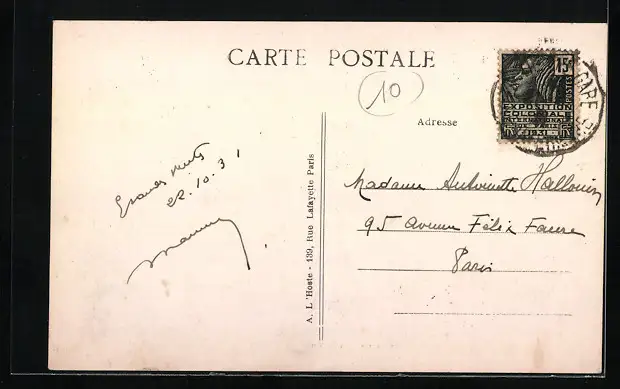 CARTE POSTALE
10
15c
POSTES
EXPOSITION
COLONIALE
INTERNATIONALE
PARIS
1931
GARE
Adresse
22.10.31
Madame Antoinette
95 avenue Félix Faure
Paris
A. L'Hoste - 139, Rue Lafayette Paris